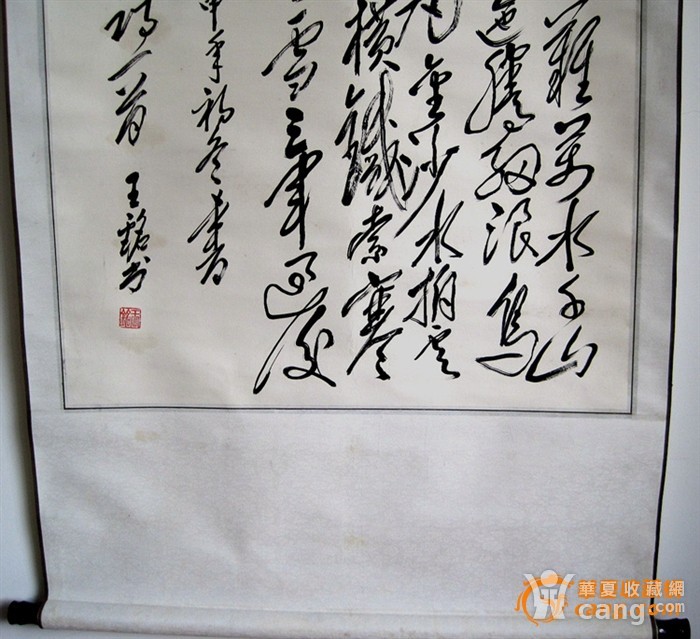 難萬水千山
迤騰細浪烏
丸金沙水拍云
橫鐵索寒
雪三軍過後
申年初冬書
詩一首 王銘書
華夏收藏網
cang.com